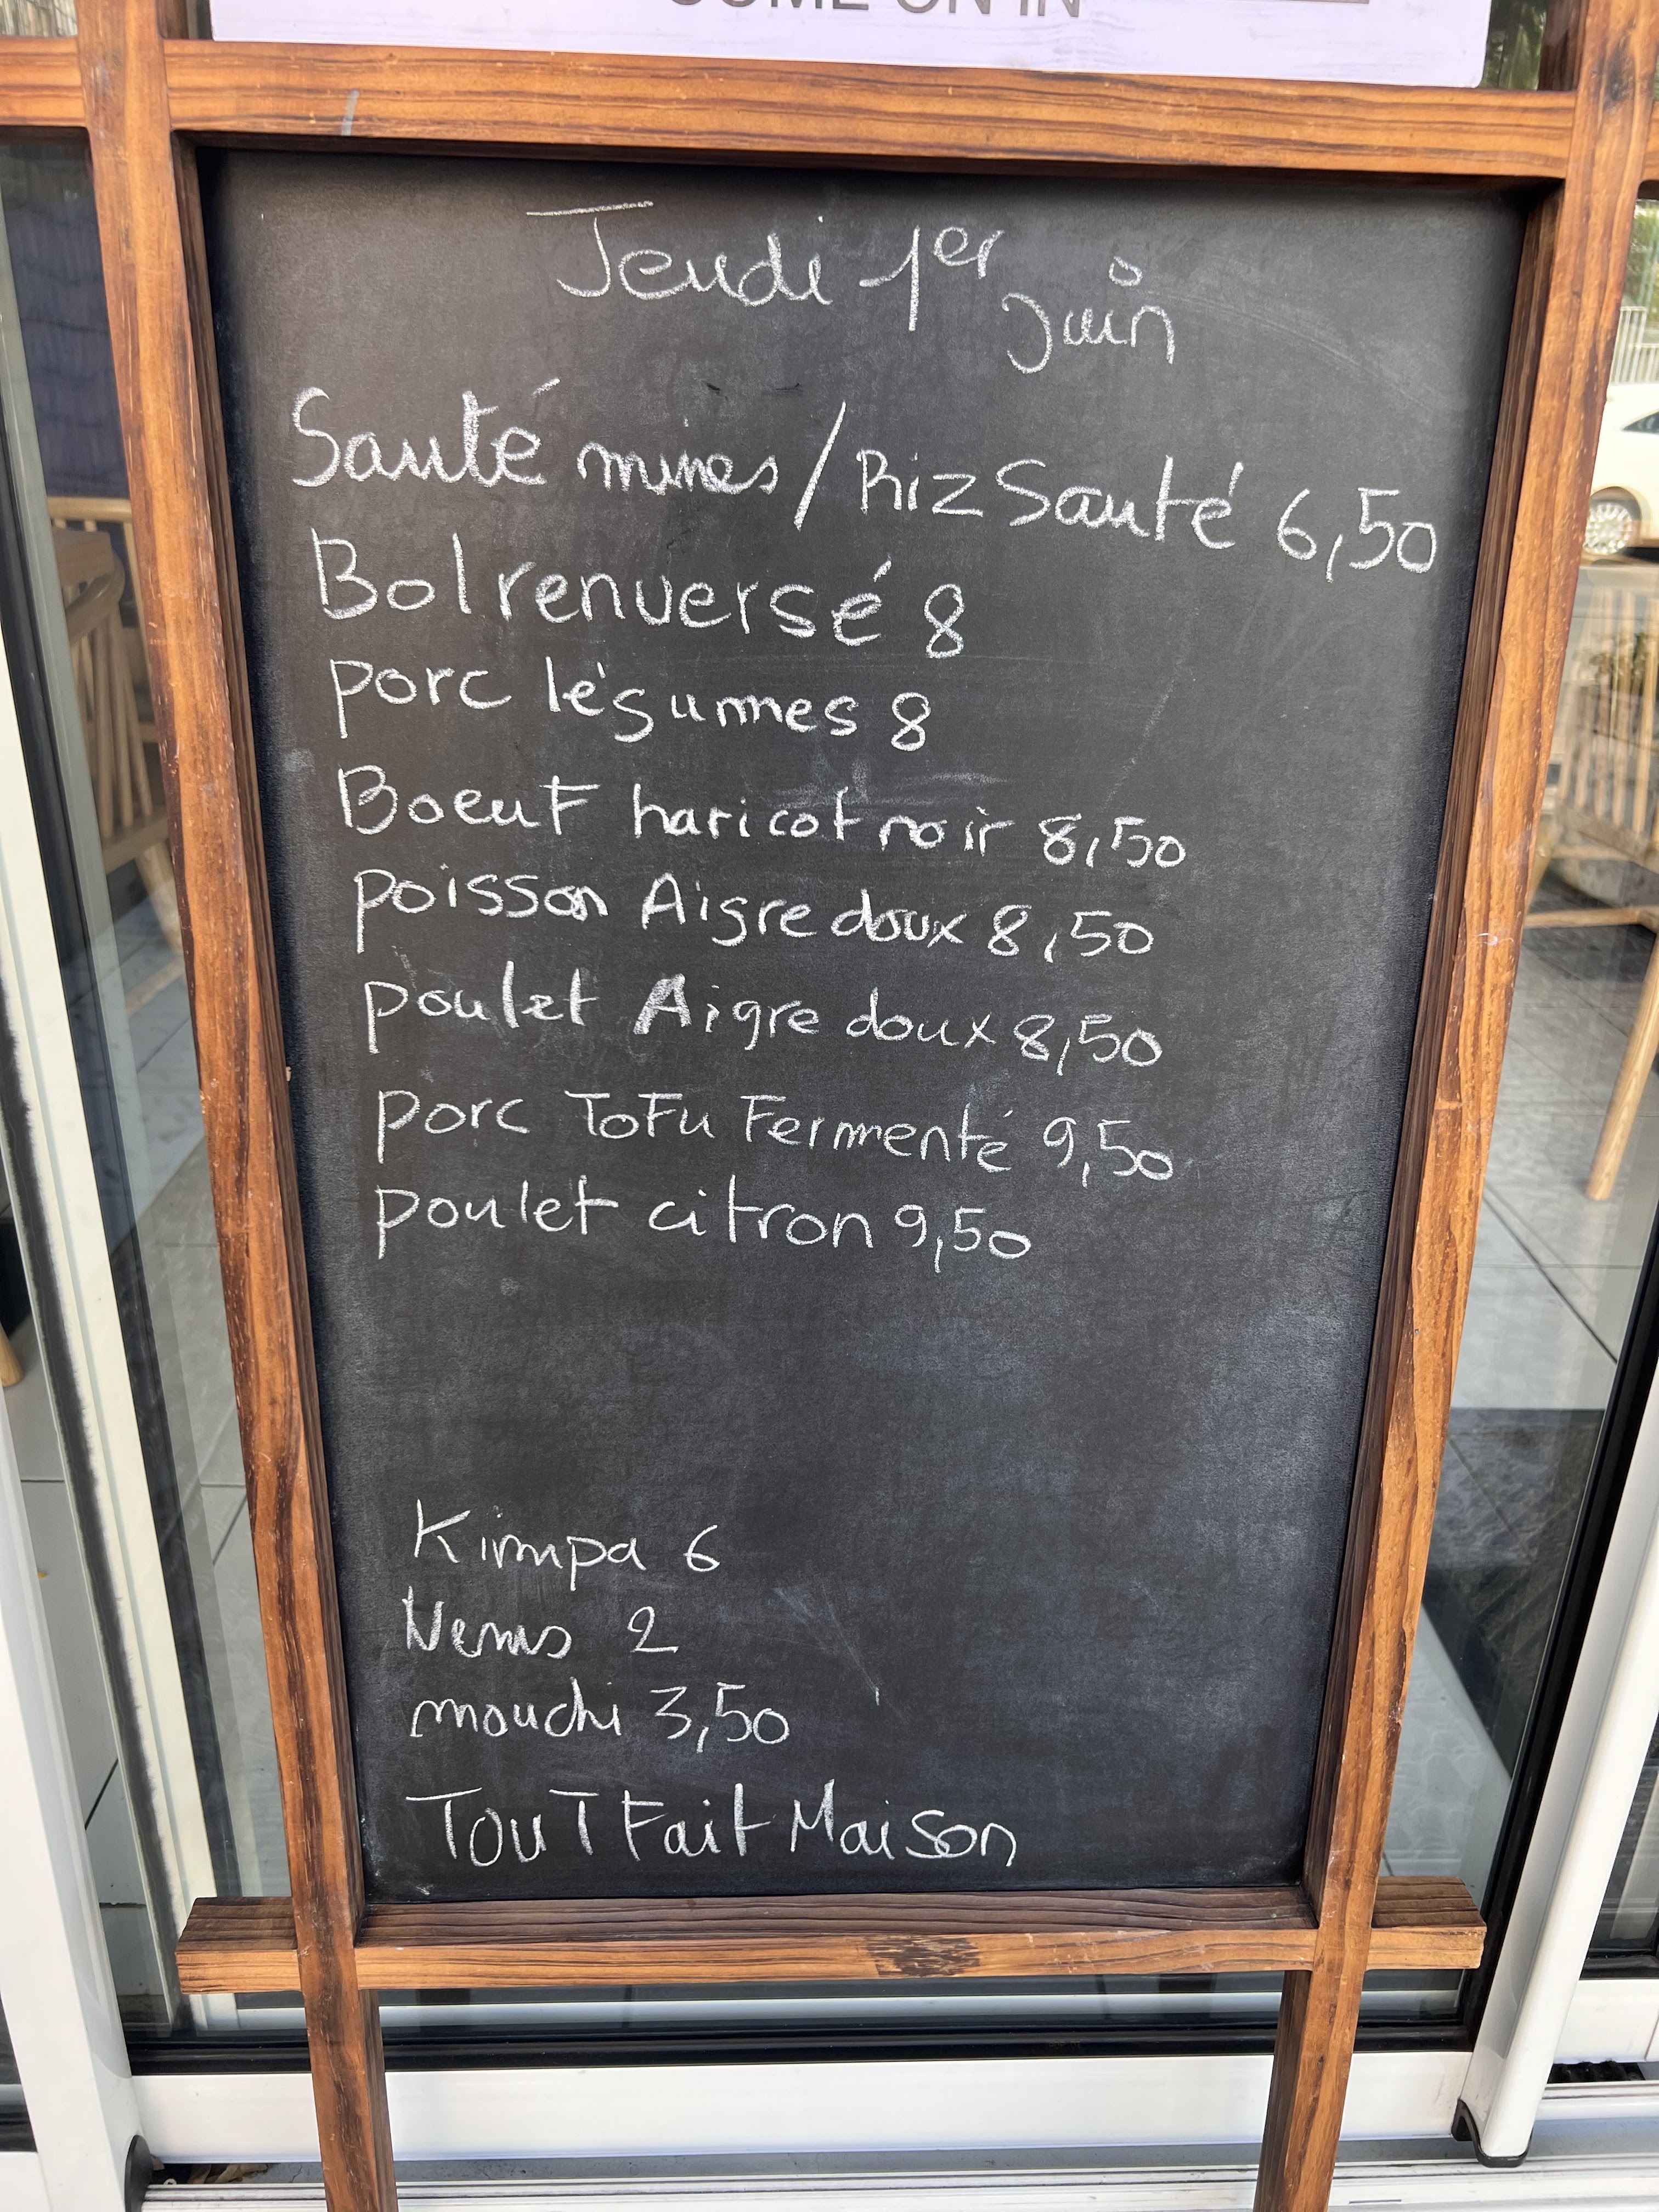 COME ON IN
Jeudi 1er Juin
Sauté mines / Riz Sauté 6,50
Bol renversé 8
porc légumes 8
Boeuf haricot noir 8,50
poisson Aigre doux 8,50
poulet Aigre doux 8,50
porc ToFu Fermenté 9,50
poulet citron 9,50
Kimpa 6
Nems 2
mouchi 3,50
TouT Fait Maison